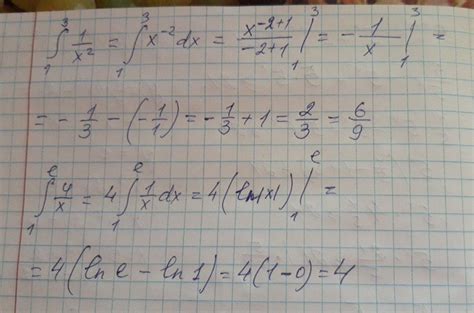 ∫₁³ 1/x² = ∫₁³ x⁻² dx = x⁻²⁺¹/(-2+1) |₁³ = - 1/x |₁³ =
= - 1/3 - (- 1/1) = - 1/3 + 1 = 2/3 = 6/9
∫₁ᵉ 4/x = 4 ∫₁ᵉ 1/x dx = 4 (ln|x|) |₁ᵉ =
= 4 (ln e - ln 1) = 4 (1 - 0) = 4